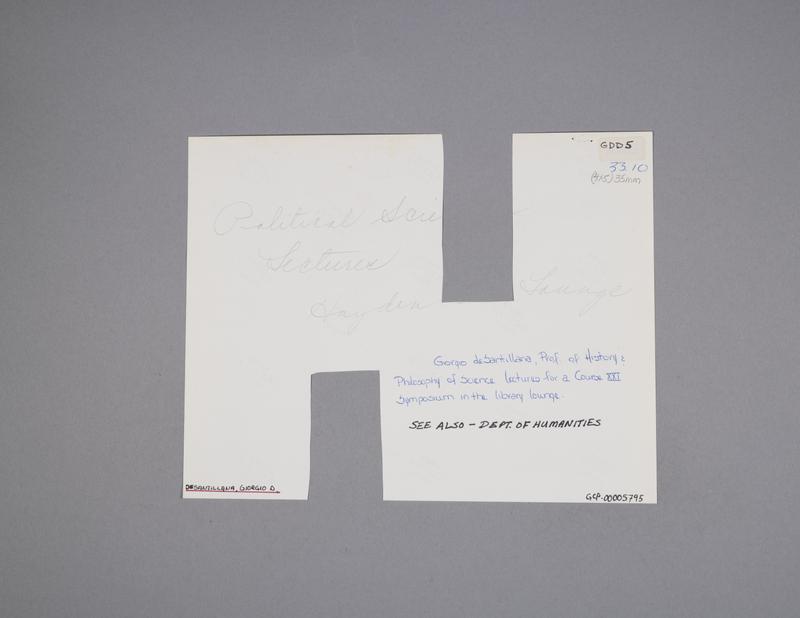 GDD5
33.10
(4x5) 35mm
Political Sci
Lectures
Hayden Lounge
Giorgio deSantillana, Prof. of History &
Philosophy of Science lectures for a Course XXI
Symposium in the library lounge.
SEE ALSO - DEPT. OF HUMANITIES
DESANTILLANA, GIORGIO D.
GCP-00005795